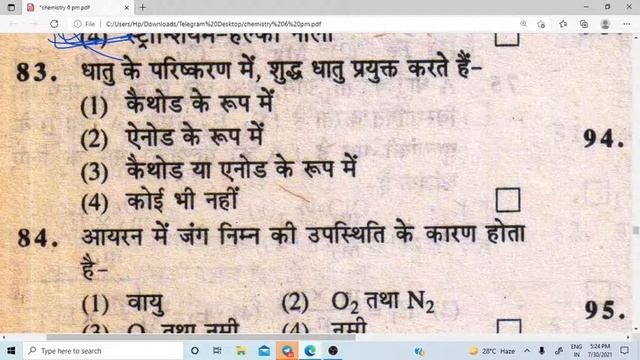 *chemistry 6 pm.pdf
File | C:/Users/Hp/Downloads/Telegram%20Desktop/chemistry%206%20pm.pdf
(4) स्ट्रॉन्शियम-हल्का नीला
83. धातु के परिष्करण में, शुद्ध धातु प्रयुक्त करते हैं-
(1) कैथोड के रूप में
(2) ऐनोड के रूप में
94.
(3) कैथोड या एनोड के रूप में
(4) कोई भी नहीं
84. आयरन में जंग निम्न की उपस्थिति के कारण होता
है-
(1) वायु (2) O₂ तथा N₂
95.
(3) O₂ तथा नमी (4) नमी
Type here to search
28°C Haze
ENG
IN
5:24 PM
7/30/2021